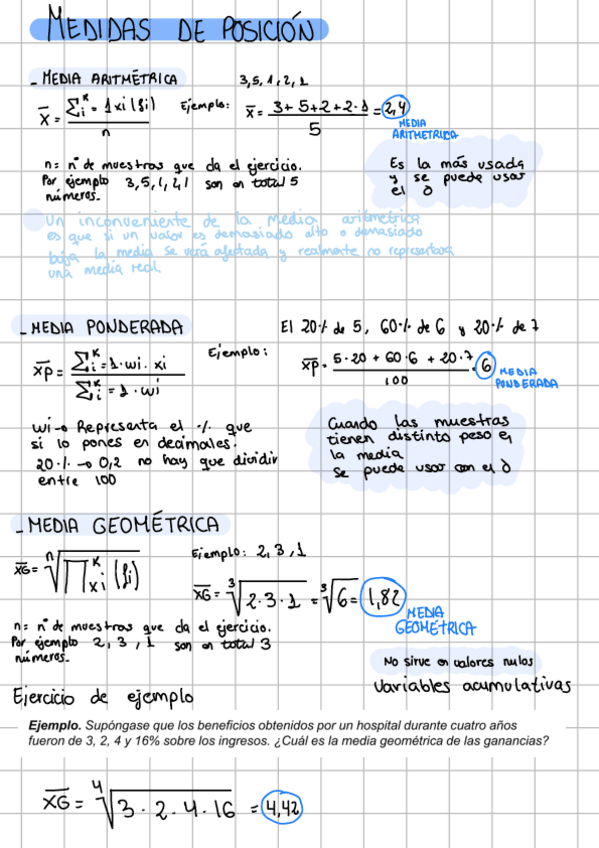 MEDIDAS DE POSICIÓN
- MEDIA ARITMÉTRICA
3, 5, 1, 2, 1
x̄ = Σᵢᴷ = 1 xi (fi) / n
Ejemplo: x̄ = 3 + 5 + 2 + 2 · 1 / 5 = 2,4
MEDIA
ARITMETRICA
n = nº de muestras que da el ejercicio.
Por ejemplo 3, 5, 1, 2, 1 son en total 5
números.
Es la más usada
y se puede usar
el 0
Un inconveniente de la media aritmetrica
es que si un valor es demasiado alto o demasiado
bajo la media se verá afectada y realmente no representara
una media real.
- MEDIA PONDERADA
El 20% de 5, 60% de 6 y 20% de 7
x̄p = Σᵢᴷ = 1 · wi · xi / Σᵢᴷ = 1 · wi
Ejemplo:
x̄p = 5 · 20 + 60 · 6 + 20 · 7 / 100 = 6
MEDIA
PONDERADA
wi → Representa el % que
si lo pones en decimales.
20% → 0,2 no hay que dividir
entre 100
Cuando las muestras
tienen distinto peso en
la media
Se puede usar con el 0
- MEDIA GEOMÉTRICA
x̄G = ⁿ√∏ᴷxi (fi)
Ejemplo: 2, 3, 1
x̄G = ³√2 · 3 · 1 = ³√6 = 1,82
MEDIA
GEOMÉTRICA
n = nº de muestras que da el ejercicio.
Por ejemplo 2, 3, 1 son en total 3
números.
No sirve en valores nulos
Variables acumulativas
Ejercicio de ejemplo
Ejemplo. Supóngase que los beneficios obtenidos por un hospital durante cuatro años
fueron de 3, 2, 4 y 16% sobre los ingresos. ¿Cuál es la media geométrica de las ganancias?
x̄G = ⁴√3 · 2 · 4 · 16 = 4,42